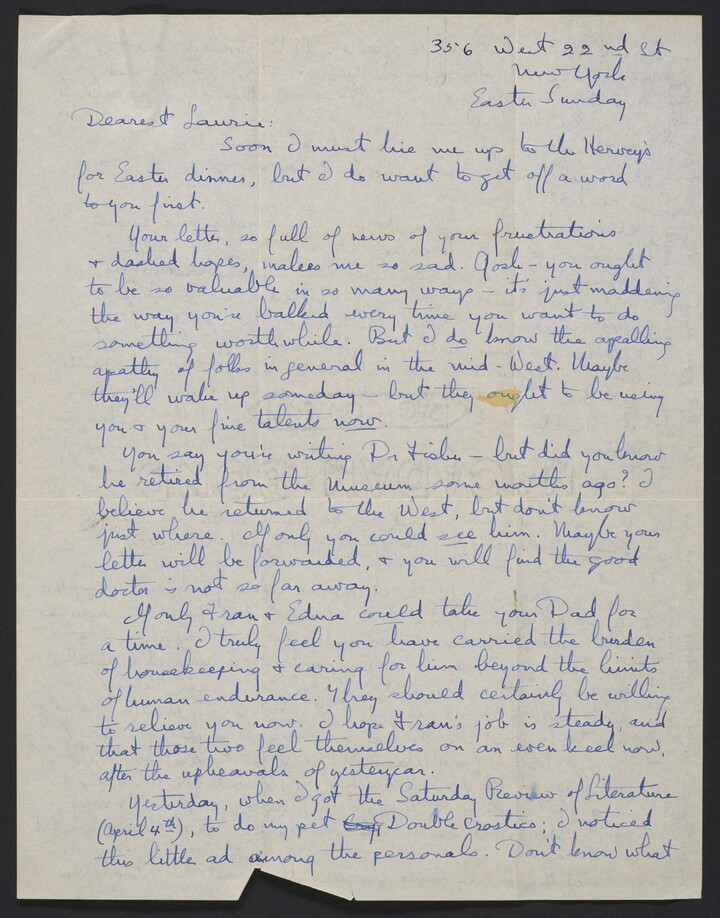 356 West 22nd St
New York
Easter Sunday
Dearest Laurie:
Soon I must hie me up to the Hervey's
for Easter dinner, but I do want to get off a word
to you first.
Your letter, so full of news of your frustrations
& dashed hopes, makes me so sad. Gosh – you ought
to be so valuable in so many ways – it's just maddening
the way you're balked every time you want to do
something worthwhile. But I do know the apalling
apathy of folks in general in the mid-West. Maybe
they'll wake up someday – but they ought to be using
you & your fine talents now.
You say you're writing Dr Fisher – but did you know
he retired from the Museum some months ago? I
believe he returned to the West, but don't know
just where. If only you could see him. Maybe your
letter will be forwarded, & you will find the good
doctor is not so far away.
If only Fran & Edna could take your Dad for
a time. I truly feel you have carried the burden
of housekeeping & caring for him beyond the limits
of human endurance. They should certainly be willing
to relieve you now. I hope Fran's job is steady, and
that those two feel themselves on an even keel now,
after the upheavals of yesteryear.
Yesterday, when I got the Saturday Review of Literature
(April 4th), to do my pet Double crostics; I noticed
this little ad among the personals. Don't know what